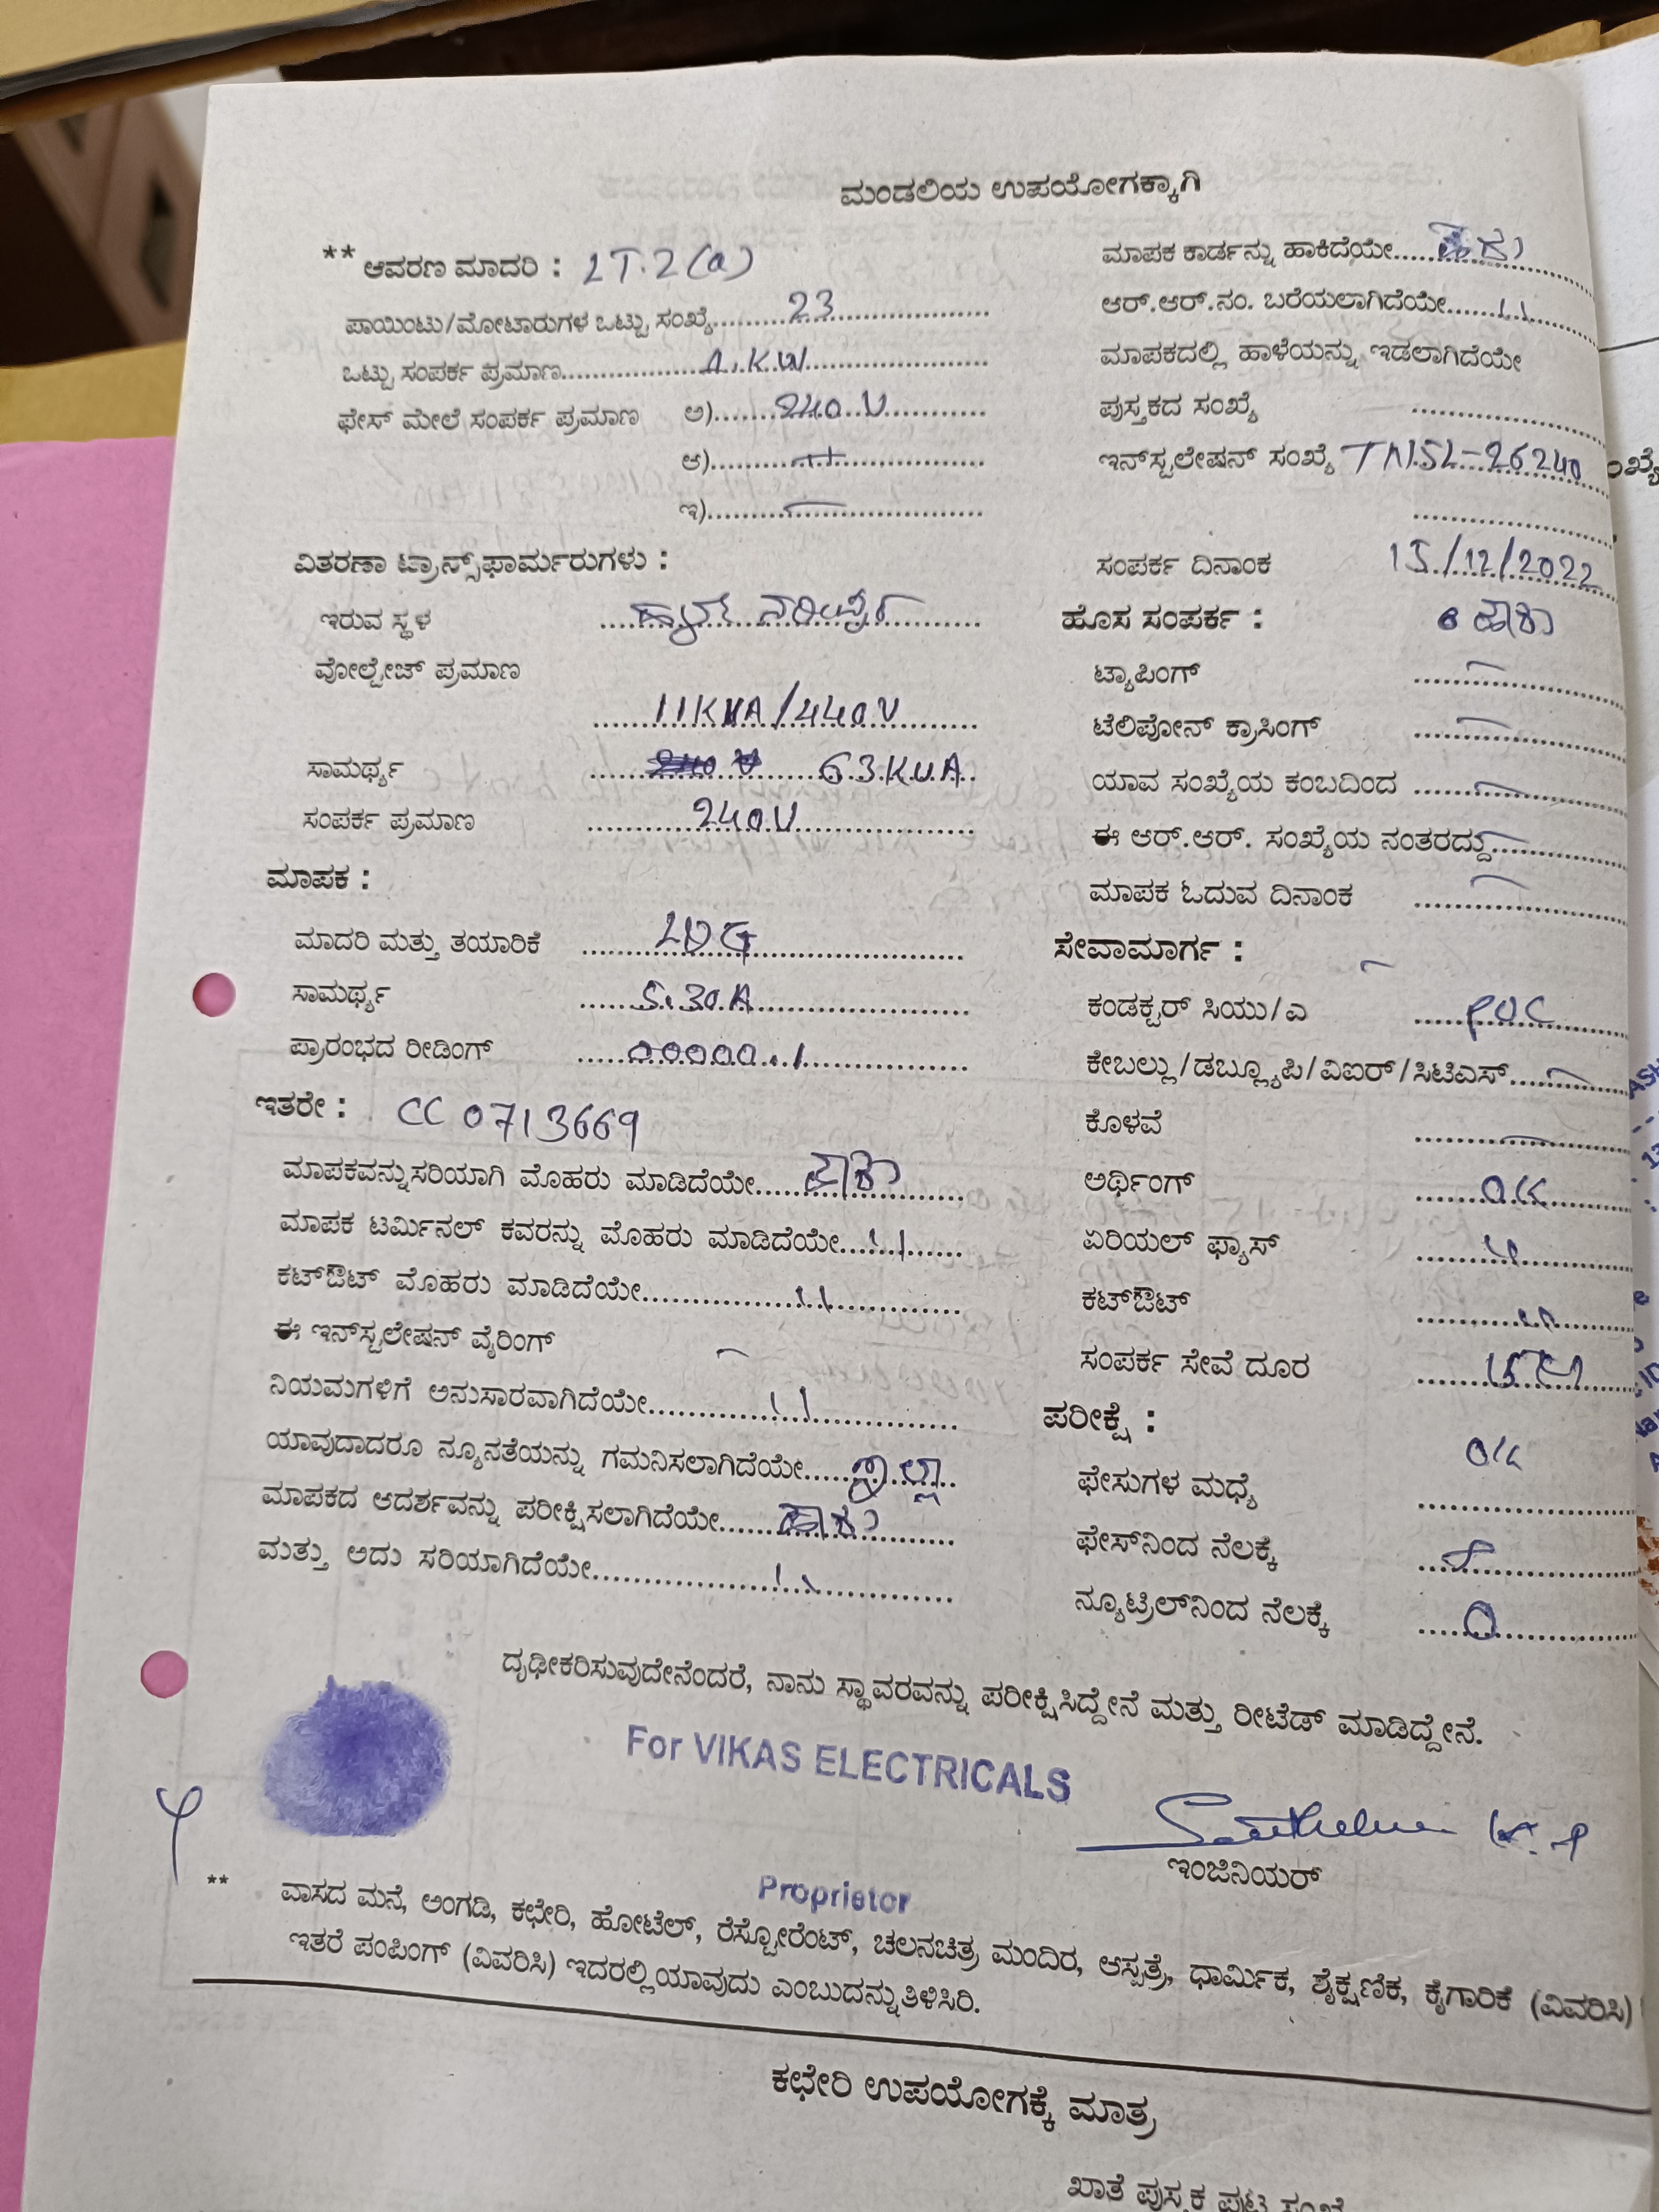 ಮಂಡಲಿಯ ಉಪಯೋಗಕ್ಕಾಗಿ
** ಆವರಣ ಮಾದರಿ : LT.2(a)
ಪಾಯಿಂಟು/ಮೋಟಾರುಗಳ ಒಟ್ಟು ಸಂಖ್ಯೆ 23
ಒಟ್ಟು ಸಂಪರ್ಕ ಪ್ರಮಾಣ KW
ಫೇಸ್ ಮೇಲೆ ಸಂಪರ್ಕ ಪ್ರಮಾಣ ಅ) 240 V
ಆ)
ಇ)
ವಿತರಣಾ ಟ್ರಾನ್ಸ್‌ಫಾರ್ಮರುಗಳು :
ಇರುವ ಸ್ಥಳ
ವೋಲ್ಟೇಜ್ ಪ್ರಮಾಣ
11KVA/440V
ಸಾಮರ್ಥ್ಯ 63 KVA
ಸಂಪರ್ಕ ಪ್ರಮಾಣ 240V
ಮಾಪಕ :
ಮಾದರಿ ಮತ್ತು ತಯಾರಿಕೆ
ಸಾಮರ್ಥ್ಯ 5.30A
ಪ್ರಾರಂಭದ ರೀಡಿಂಗ್ 00000.1
ಇತರೇ : CC 0713669
ಮಾಪಕವನ್ನು ಸರಿಯಾಗಿ ಮೊಹರು ಮಾಡಿದೆಯೇ ಹೌದು
ಮಾಪಕ ಟರ್ಮಿನಲ್ ಕವರನ್ನು ಮೊಹರು ಮಾಡಿದೆಯೇ 11
ಕಟ್‌ಔಟ್ ಮೊಹರು ಮಾಡಿದೆಯೇ 11
ಈ ಇನ್‌ಸ್ಟಲೇಷನ್ ವೈರಿಂಗ್
ನಿಯಮಗಳಿಗೆ ಅನುಸಾರವಾಗಿದೆಯೇ 11
ಯಾವುದಾದರೂ ನ್ಯೂನತೆಯನ್ನು ಗಮನಿಸಲಾಗಿದೆಯೇ ಇಲ್ಲ
ಮಾಪಕದ ಆದರ್ಶವನ್ನು ಪರೀಕ್ಷಿಸಲಾಗಿದೆಯೇ ಹೌದು
ಮತ್ತು ಅದು ಸರಿಯಾಗಿದೆಯೇ 11
ಮಾಪಕ ಕಾರ್ಡನ್ನು ಹಾಕಿದೆಯೇ ಹೌದು
ಆರ್.ಆರ್.ನಂ. ಬರೆಯಲಾಗಿದೆಯೇ 11
ಮಾಪಕದಲ್ಲಿ ಹಾಳೆಯನ್ನು ಇಡಲಾಗಿದೆಯೇ
ಪುಸ್ತಕದ ಸಂಖ್ಯೆ
ಇನ್‌ಸ್ಟಲೇಷನ್ ಸಂಖ್ಯೆ TNSL-26240
ಸಂಪರ್ಕ ದಿನಾಂಕ 15/12/2022
ಹೊಸ ಸಂಪರ್ಕ : ಹೌದು
ಟ್ಯಾಪಿಂಗ್
ಟೆಲಿಪೋನ್ ಕ್ರಾಸಿಂಗ್
ಯಾವ ಸಂಖ್ಯೆಯ ಕಂಬದಿಂದ
ಈ ಆರ್.ಆರ್. ಸಂಖ್ಯೆಯ ನಂತರದ್ದು
ಮಾಪಕ ಓದುವ ದಿನಾಂಕ
ಸೇವಾಮಾರ್ಗ :
ಕಂಡಕ್ಟರ್ ಸಿಯು/ಎ PVC
ಕೇಬಲ್ಲು/ಡಬ್ಲ್ಯೂಪಿ/ವಿಐರ್/ಸಿಟಿಎಸ್
ಕೊಳವೆ
ಅರ್ಥಿಂಗ್ OK
ಏರಿಯಲ್ ಫ್ಯಾಸ್ 11
ಕಟ್‌ಔಟ್ 11
ಸಂಪರ್ಕ ಸೇವೆ ದೂರ
ಪರೀಕ್ಷೆ :
OK
ಫೇಸುಗಳ ಮಧ್ಯೆ
ಫೇಸ್‌ನಿಂದ ನೆಲಕ್ಕೆ
ನ್ಯೂಟ್ರಿಲ್‌ನಿಂದ ನೆಲಕ್ಕೆ 0
ದೃಢೀಕರಿಸುವುದೇನೆಂದರೆ, ನಾನು ಸ್ಥಾವರವನ್ನು ಪರೀಕ್ಷಿಸಿದ್ದೇನೆ ಮತ್ತು ರೀಟೆಡ್ ಮಾಡಿದ್ದೇನೆ.
For VIKAS ELECTRICALS
ಇಂಜಿನಿಯರ್
Proprietor
** ವಾಸದ ಮನೆ, ಅಂಗಡಿ, ಕಛೇರಿ, ಹೋಟೆಲ್, ರೆಸ್ಟೋರೆಂಟ್, ಚಲನಚಿತ್ರ ಮಂದಿರ, ಅಸ್ಪತ್ರೆ, ಧಾರ್ಮಿಕ, ಶೈಕ್ಷಣಿಕ, ಕೈಗಾರಿಕೆ (ವಿವರಿಸಿ)
ಇತರೆ ಪಂಪಿಂಗ್ (ವಿವರಿಸಿ) ಇದರಲ್ಲಿ ಯಾವುದು ಎಂಬುದನ್ನು ತಿಳಿಸಿರಿ.
ಕಛೇರಿ ಉಪಯೋಗಕ್ಕೆ ಮಾತ್ರ
ಖಾತೆ ಪುಸ್ತಕ ಪುಟ ಸಂಖ್ಯೆ